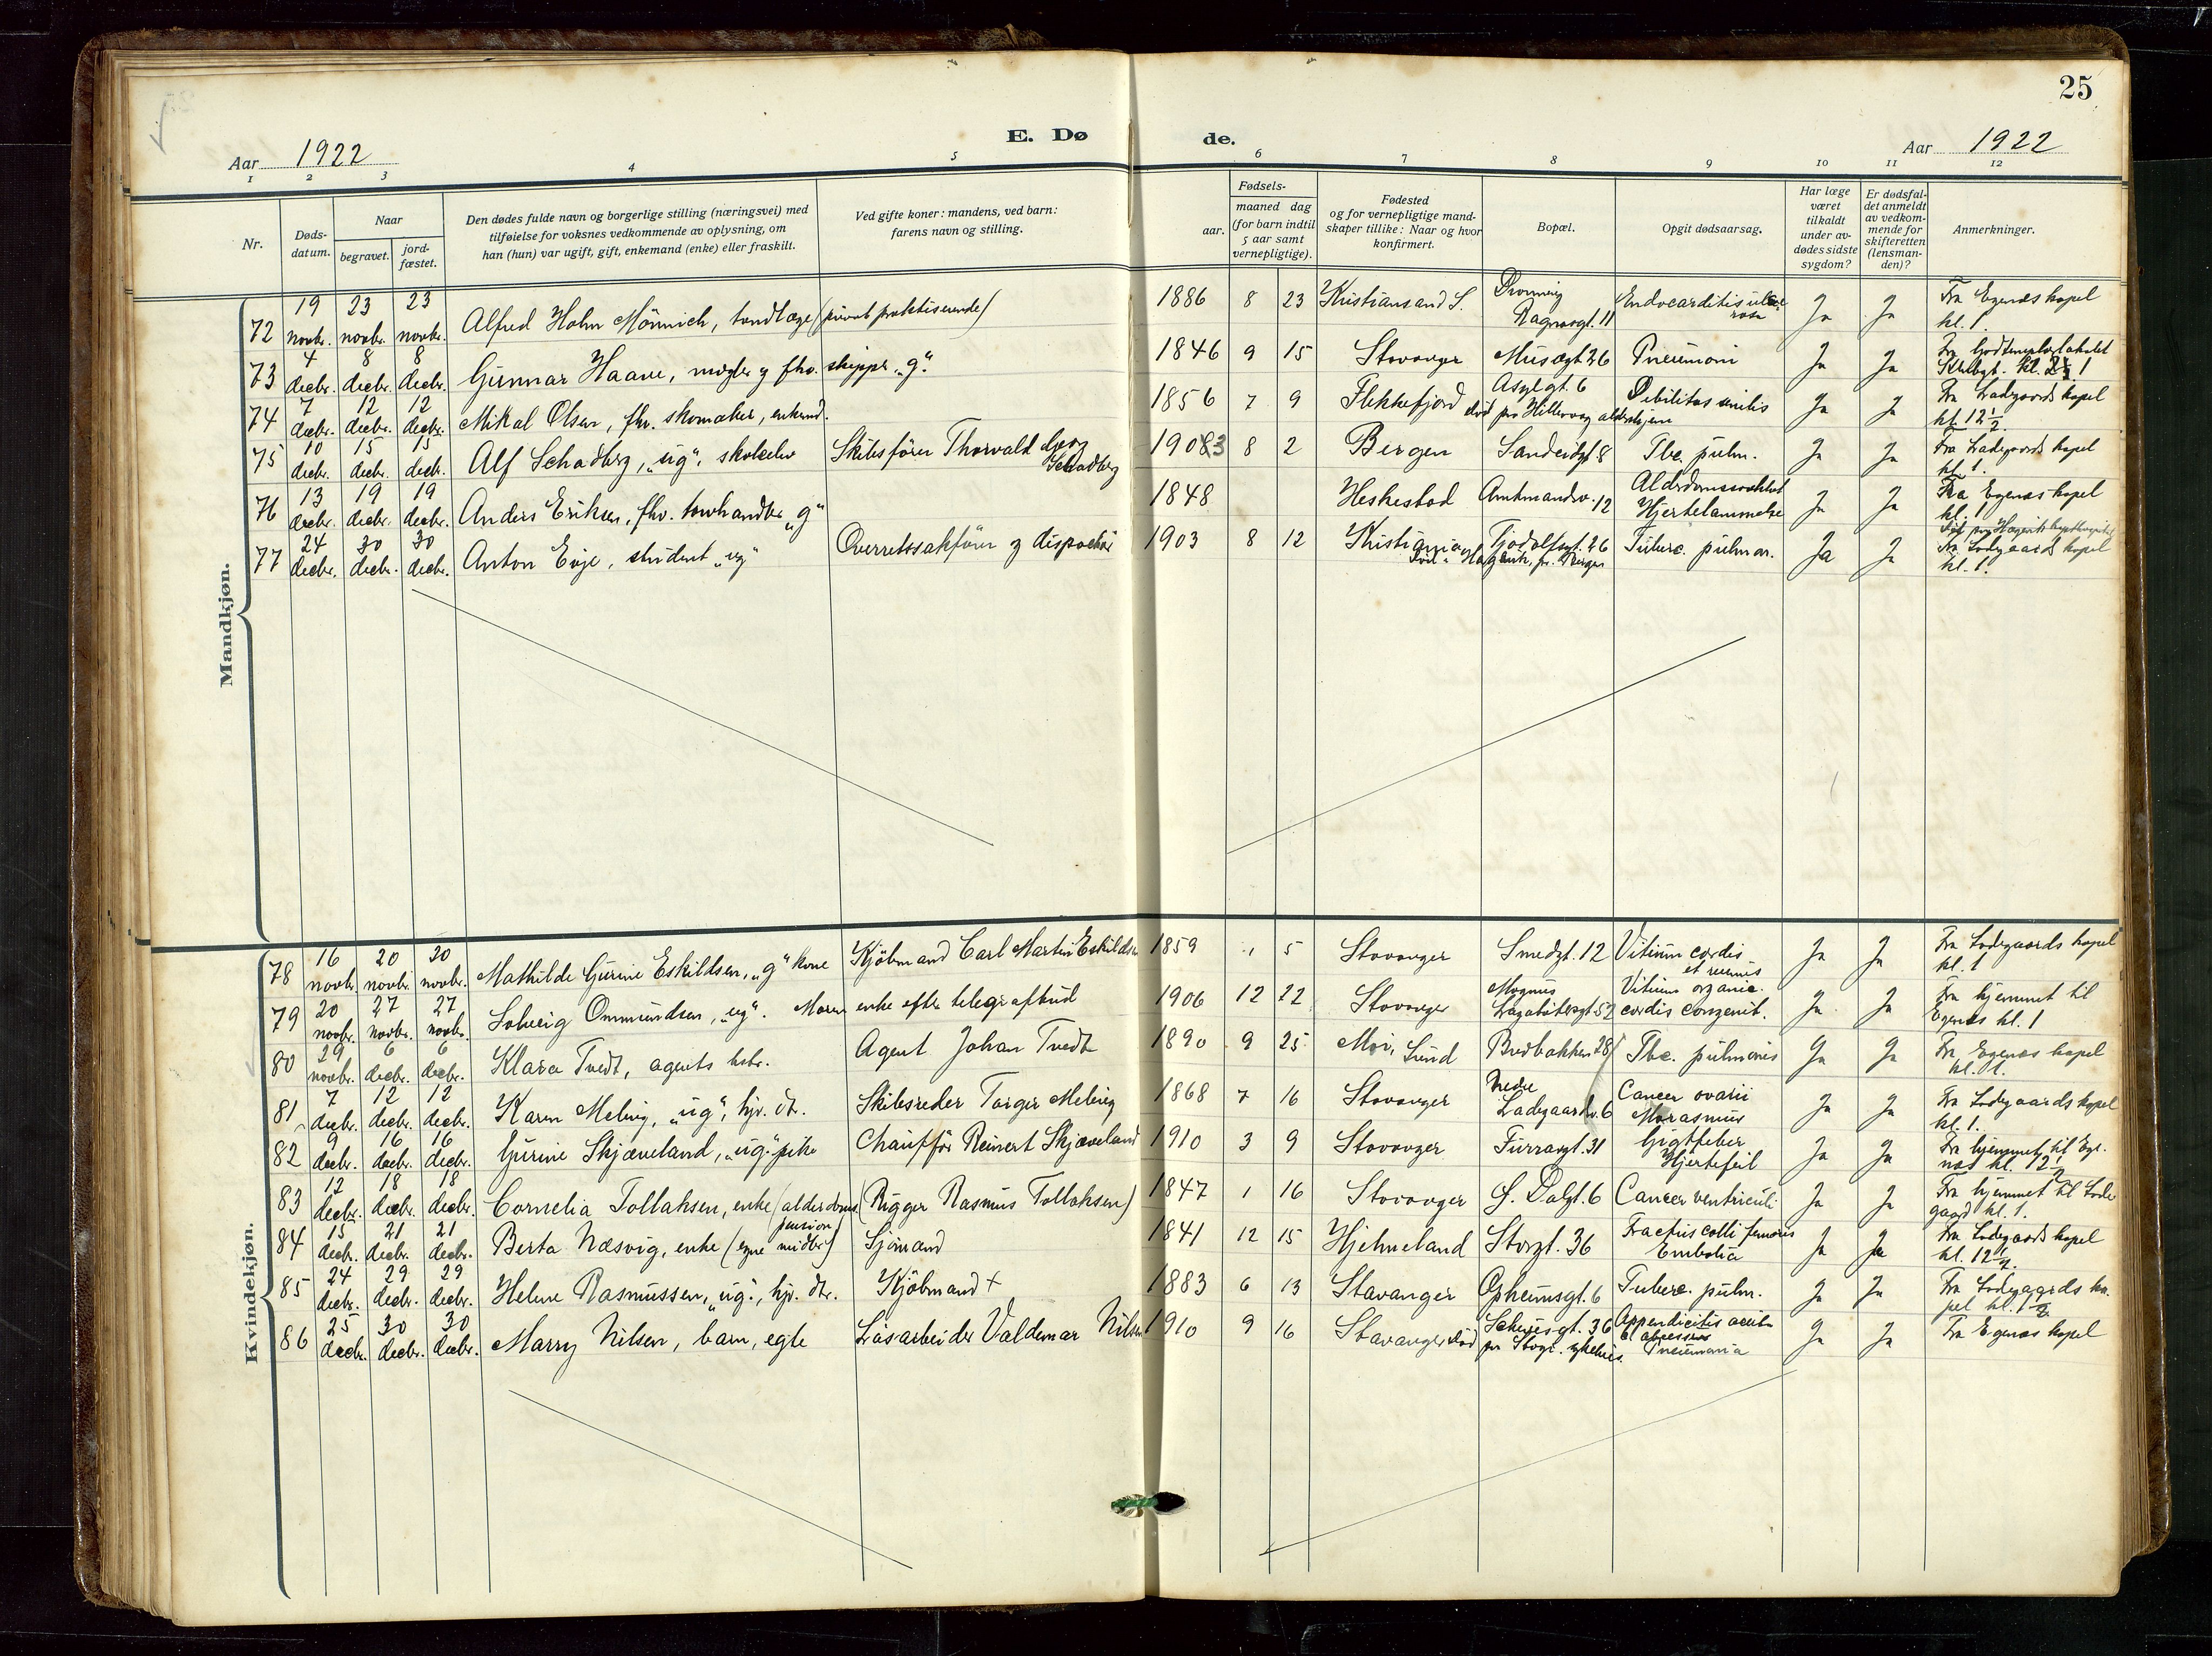 25
E. Døde.
Aar 1922
Aar 1922
1 2 3 4 5 6 7 8 9 10 11 12
Nr.
Døds-datum.
Naar
begravet.
jord-fæstet.
Den dødes fulde navn og borgerlige stilling (næringsvei) med
tilføielse for voksnes vedkommende av oplysning, om
han (hun) var ugift, gift, enkemand (enke) eller fraskilt.
Ved gifte koner: mandens, ved barn:
farens navn og stilling.
Fødsels-
aar.
maaned dag
(for barn indtil
5 aar samt
vernepligtige).
Fødested
og for vernepligtige mand-
skaper tillike: Naar og hvor
konfirmert.
Bopæl.
Opgit dødsaarsag.
Har læge
været
tilkaldt
under av-
dødes sidste
sygdom?
Er dødsfal-
det anmeldt
av vedkom-
mende for
skifteretten
(lensman-
den)?
Anmerkninger.
Mandkjøn.
72 19 novbr. 23 novbr. 23 novbr. Alfred Holm Mönnich, tandlæge (privat praktiserende) 1886 8 23 Kristiansand S. Dronning Dagmarsgt. 11 Endocarditis ulce rosa Ja Ja Fra Egenæs kapel kl. 1.
73 4 decbr. 8 decbr. 8 decbr. Gunnar Haave, mægler g fhv. skipper "g". 1846 9 15 Stavanger Musægt. 26 Pneumoni Ja Ja Fra Godtemplarlokalet kl. 1
74 7 decbr. 12 decbr. 12 decbr. Mikal Olsen, fhv. skomaker, enkemd. 1856 7 9 Flekkefjord Asylgt. 6 død paa Hillevaag aldershjem Debilitas senilis Ja Ja Fra Ladegaards kapel kl. 12 1/2.
75 10 decbr. 15 decbr. 15 decbr. Alf Schadberg, "ug", skoleelev Skibsförer Thorvald Georg Schadberg 1903 8 2 Bergen Sandeidgt. 8 Tbc. pulm. Ja Ja Fra Ladegaards kapel kl. 1.
76 13 decbr. 19 decbr. 19 decbr. Anders Eriksen, fhv. "g" 1848 Heskestad Amtmandsv. 12 Alderdomssvakhet Hjertelammelse Ja Ja Fra Egenæs kapel kl. 1
77 24 decbr. 30 decbr. 30 decbr. Anton Eeje, student "ug" Overretssakförer g dispachör 1903 8 12 Kristiania Tjodolfsgt. 26 Død: Hagavik, pr. Bergen Tuberc. pulmon. Ja Ja Fra Ladegaards kapel kl. 1.
Kvindekjøn.
78 16 novbr. 20 novbr. 20 novbr. Mathilde Gurine Eskildsen, "g" kone Kjöbmand Carl Martin Eskildsen 1859 1 5 Stavanger Smedgt. 12 Vitium cordis Ja Ja Fra Ladegaards kapel kl. 1
79 20 novbr. 27 novbr. 27 novbr. Solveig Ommundsen, "ug". Moren enke efter telegrafbud 1906 12 22 Stavanger Magnus Lagabøtersgt. 52 Vitium organic. cordis congenit. Ja Ja Fra hjemmet til Egenæs kl. 1
80 29 novbr. 6 decbr. 6 decbr. Klara Tvedt, agents hstr. Agent Johan Tvedt 1890 9 25 Moi, Lund Bredbakken 28 Tbc. pulmonis Ja Ja Fra Egenæs kapel kl. 1.
81 7 decbr. 12 decbr. 12 decbr. Karen Meling, "ug", hjv. dt. Skibsreder Torger Meling 1868 7 16 Stavanger Nedre Ladegaardsv. 6 Cancer ovarii Marasmus Ja Ja Fra Ladegaards kapel kl. 1.
82 9 decbr. 16 decbr. 16 decbr. Gurine Skjæveland, "ug" pike Chauffør Reinert Skjæveland 1910 3 9 Stavanger Furragt. 31 Gigtfeber Hjertefeil Ja Ja Fra hjemmet til Egenæs kl. 12 1/2
83 12 decbr. 18 decbr. 18 decbr. Cornelia Tollaksen, enke (alderdoms pension) (Rigger Rasmus Tollaksen) 1847 1 16 Stavanger S. Dalgt. 6 Cancer ventriculi Ja Ja Fra hjemmet til Lade gaard kl. 1.
84 15 decbr. 21 decbr. 21 decbr. Berta Næsvig, enke (egne midler) Sjømand 1841 12 15 Hjelmeland Storgt. 36 Fractus colli femoris Embolia Ja Ja Fra Ladegaards kapel kl. 12 1/2.
85 24 decbr. 29 decbr. 29 decbr. Helene Rasmussen, "ug", hjv. dtr. Kjöbmand + 1883 6 13 Stavanger Opheimsgt. 6 Tuberc. pulm. Ja Ja Fra Ladegaards ka pel kl.
86 25 decbr. 30 decbr. 30 decbr. Marry Nilsen, barn, egte Løsarbeider Valdemar Nilsen 1910 9 16 Stavanger død paa Stvgr. sykehus Scheiesgt. 36 Appendicitis acuta Pneumonia Ja Ja Fra Egenæs kapel